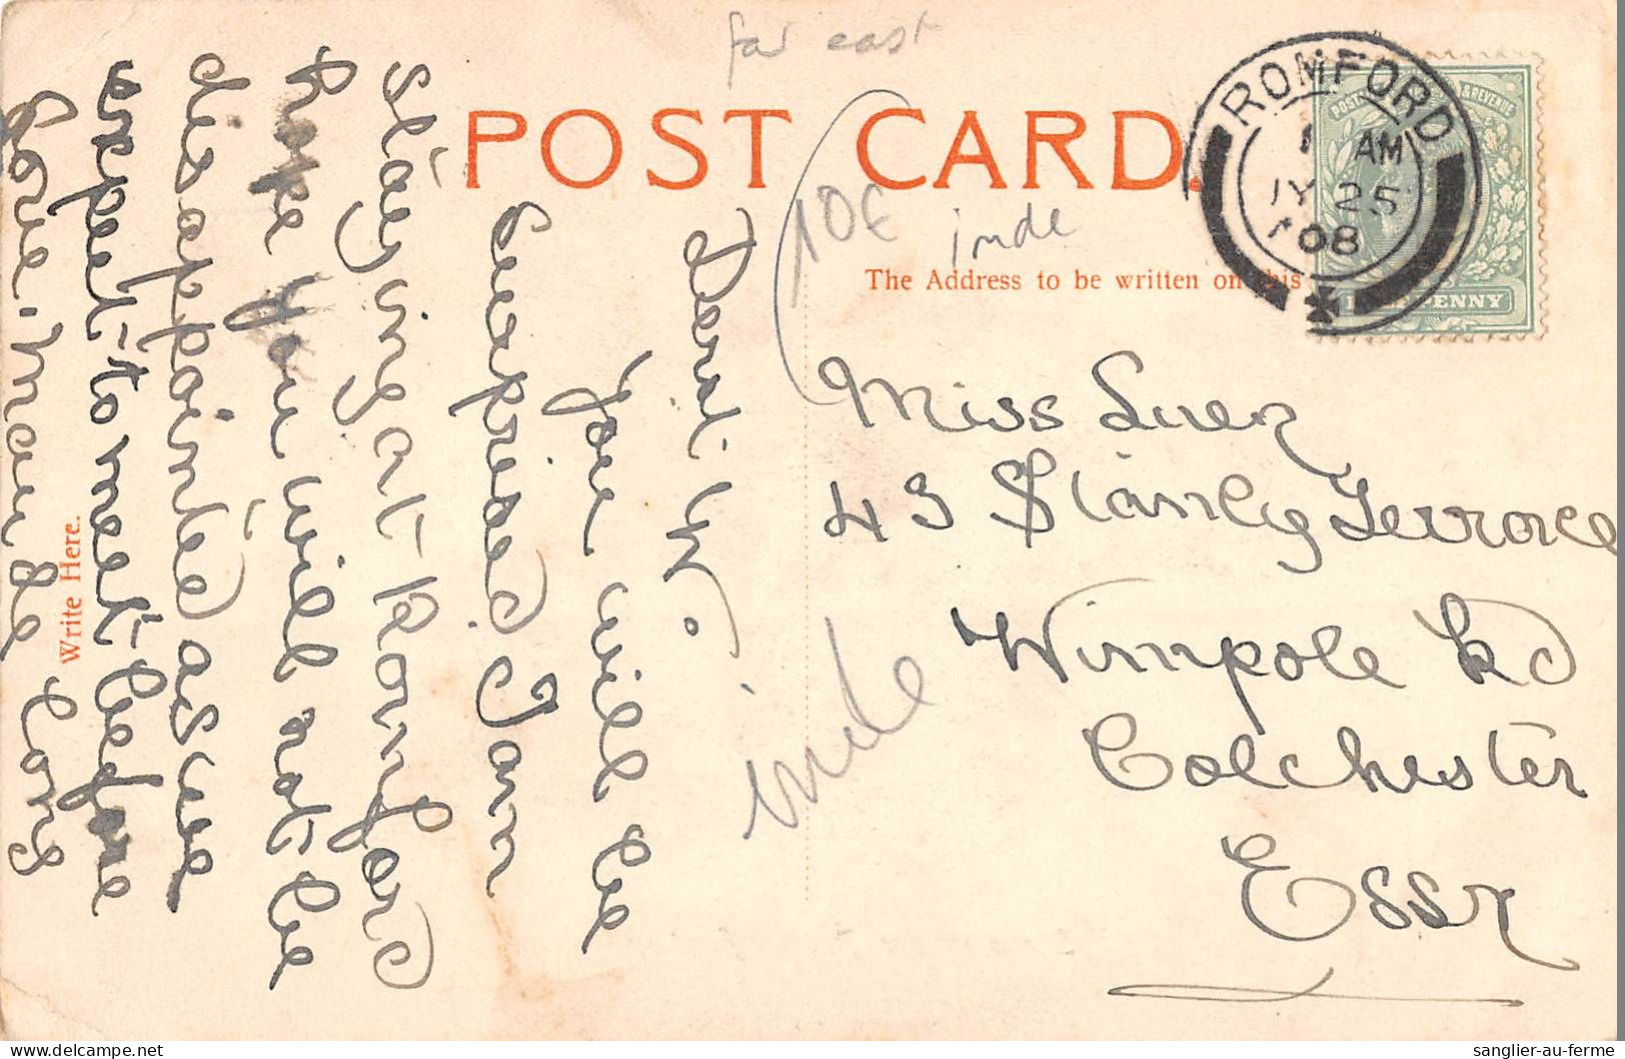 far east
POST CARD.
10€
inde
The Address to be written on this
ROMFORD
AM
JY 25
08
POSTAGE & REVENUE
HALF PENNY
Miss
43 Stanley Terrace
Wimpole Rd
Colchester
Essex
inde
Dear W.
You will be
surprised I am
staying at Romford
hope you will not be
disappointed as we
expect to meet before
long
Love
Write Here.
sanglier-au-ferme